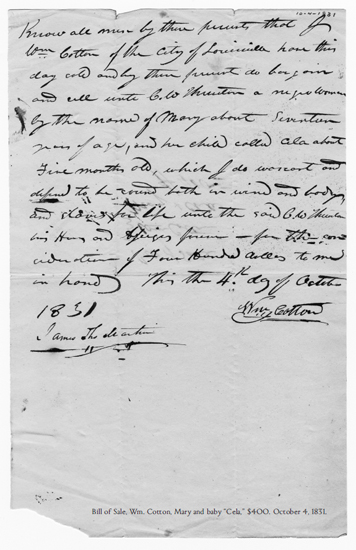 10-4-1831
Know all men by these presents that I
Wm Cotton of the City of Louisville have this
day sold and by these present do bargain
and sell unto C W Thruston a negro Woman
by the name of Mary about Seventeen
years of age, and her child called Cela about
Five months old, which I do warrant and
defend to be sound both in wind and body
and slaves for life unto the said C W Thruston
his Heirs and forever for the con
sideration of Four Hundred dolls to me
in hand This the 4th day of October
1831
Wm Cotton
James
Bill of Sale, Wm. Cotton, Mary and baby "Cela," $400, October 4, 1831.